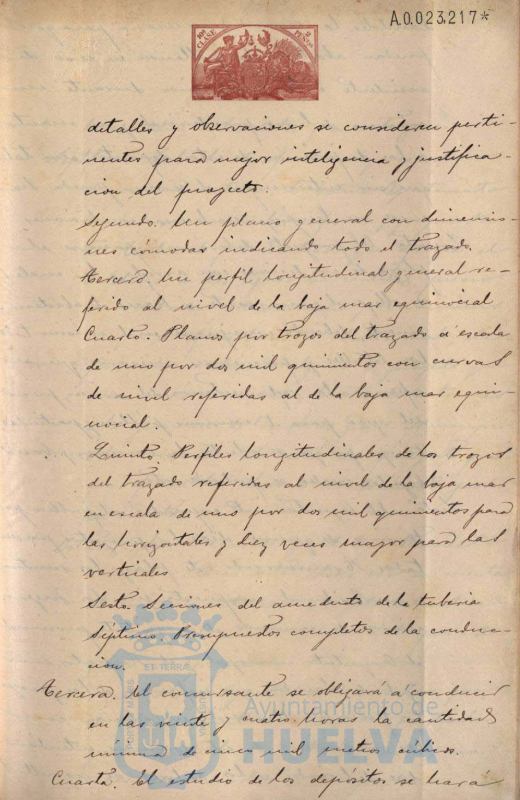 A.0.023,217*
10ª CLASE
2 PESETAS
detalles y observaciones se consideren perti-
nentes para mejor inteligencia y justifica-
cion del proyecto.
Segundo. Un plano general con dimensio-
nes cómodas indicando todo el trazado.
Tercero. Un perfil longitudinal general re-
ferido al nivel de la baja mar equinocial
Cuarto. Planos por trozos del trazado á escala
de uno por dos mil quinientos con curvas
de nivel referidas al de la baja mar equi-
nocial.
Quinto. Perfiles longitudinales de los trozos
del trazado referidas al nivel de la baja mar
en escala de uno por dos mil quinientos para
las horizontales y diez veces mayor para las
verticales
Sesto. Secciones del acueducto de la tuberia
Séptimo. Presupuestos completos de la conduc-
cion.
Tercera. El concursante se obligará á conducir
en las veinte y cuatro horas la cantidad
mínima de cinco mil metros cúbicos.
Cuarta. El estudio de los depósitos se hara
Ayuntamiento de
HUELVA